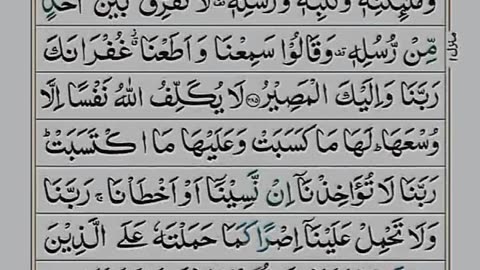 وَمَلٰٓئِكَتِهٖ وَكُتُبِهٖ وَرُسُلِهٖ لَا نُفَرِّقُ بَيْنَ اَحَدٍ
مِّنْ رُّسُلِهٖ وَقَالُوْا سَمِعْنَا وَاَطَعْنَا غُفْرَانَكَ
رَبَّنَا وَاِلَيْكَ الْمَصِيْرُ ۲۸۵ لَا يُكَلِّفُ اللّٰهُ نَفْسًا اِلَّا
وُسْعَهَا لَهَا مَا كَسَبَتْ وَعَلَيْهَا مَا اكْتَسَبَتْ ط
رَبَّنَا لَا تُؤَاخِذْنَآ اِنْ نَّسِيْنَآ اَوْ اَخْطَاْنَا ج رَبَّنَا
وَلَا تَحْمِلْ عَلَيْنَآ اِصْرًا كَمَا حَمَلْتَهٗ عَلَى الَّذِيْنَ